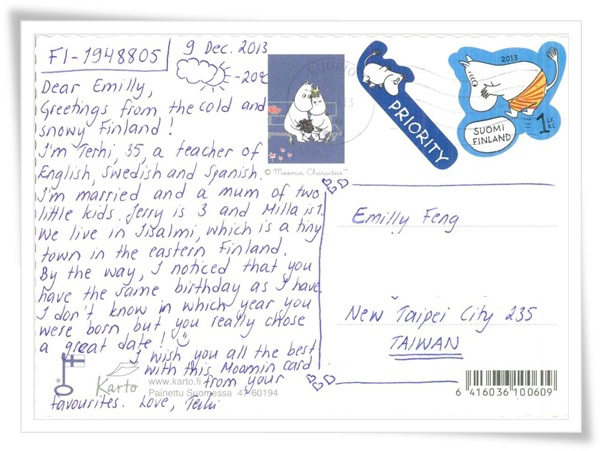 FI-1948805
9 Dec. 2013
-20°C
Dear Emilly,
Greetings from the cold and
snowy Finland!
I'm Terhi, 35, a teacher of
English, Swedish and Spanish.
I'm married and a mum of two
little kids. Jerry is 3 and Milla is 1.
We live in Iisalmi, which is a tiny
town in the eastern Finland.
By the way, I noticed that you
have the same birthday as I have
I don't know in which year you
were born but you really chose
a great date!
I wish you all the best
with this Moomin card
from your
favourites. Love, Terhi
© Moomin Characters™
PRIORITY
2013
SUOMI
FINLAND
1 LK
KL
Emilly Feng
New Taipei City 235
TAIWAN
Karto
www.karto.fi
Painettu Suomessa 47-60194
6 416036 100609